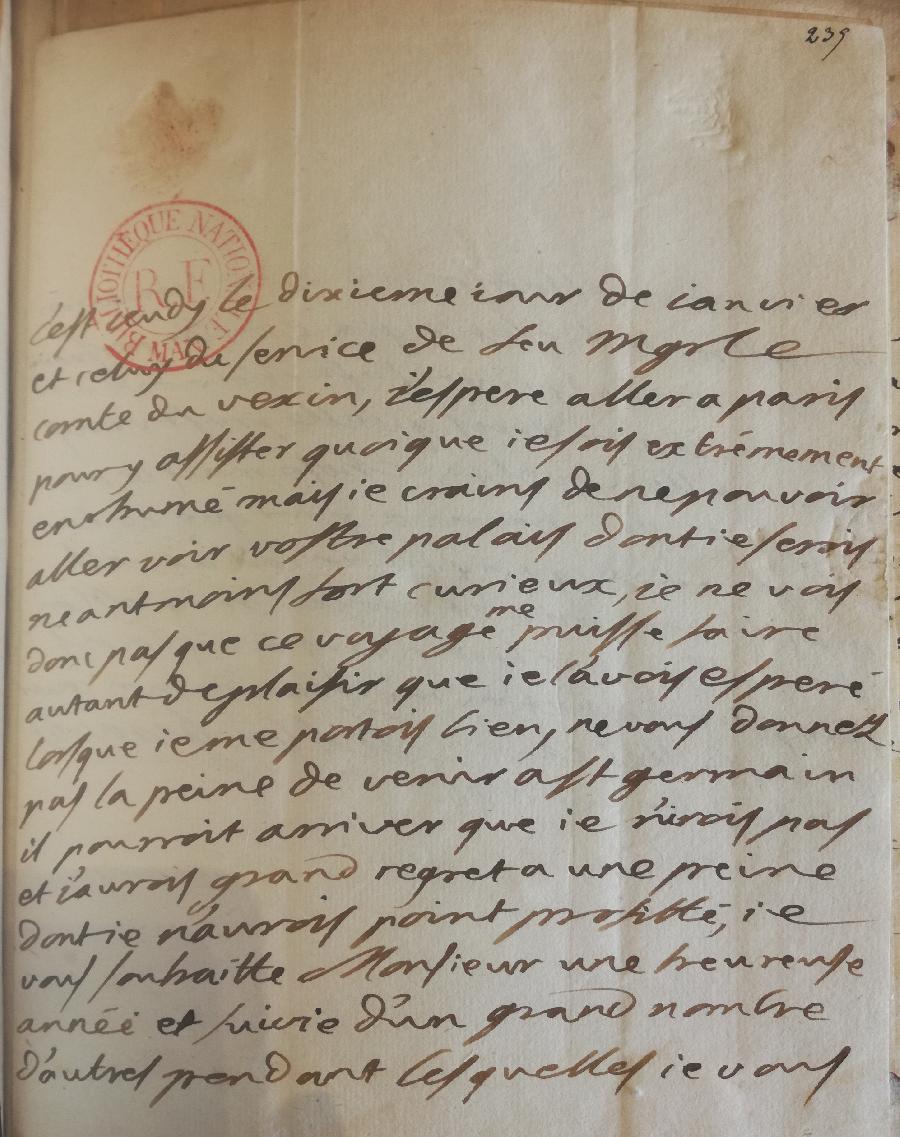 239
BIBLIOTHEQUE NATIONALE MAN
R F
c'est jeudy le dixieme iour de ianvier
et celuy du service de feu Mgr le
comte du vexin, i'espere aller a paris
pour y assister quoique ie sois extrémement
enrhumé mais ie crains de ne pouvoir
aller voir vostre palais dont ie serois
neantmoins fort curieux, ie ne vois
donc pas que ce voyage me puisse faire
autant de plaisir que ie l'avois esperé
lorsque ie me portois bien, ne vous donnez
pas la peine de venir a st germain
il pourroit arriver que ie n'irois pas
et i'aurois grand regret a une peine
dont ie n'aurois point profitté, ie
vous souhaitte Monsieur une heureuse
année et suivie d'un grand nombre
d'autres pendant lesquelles ie vous